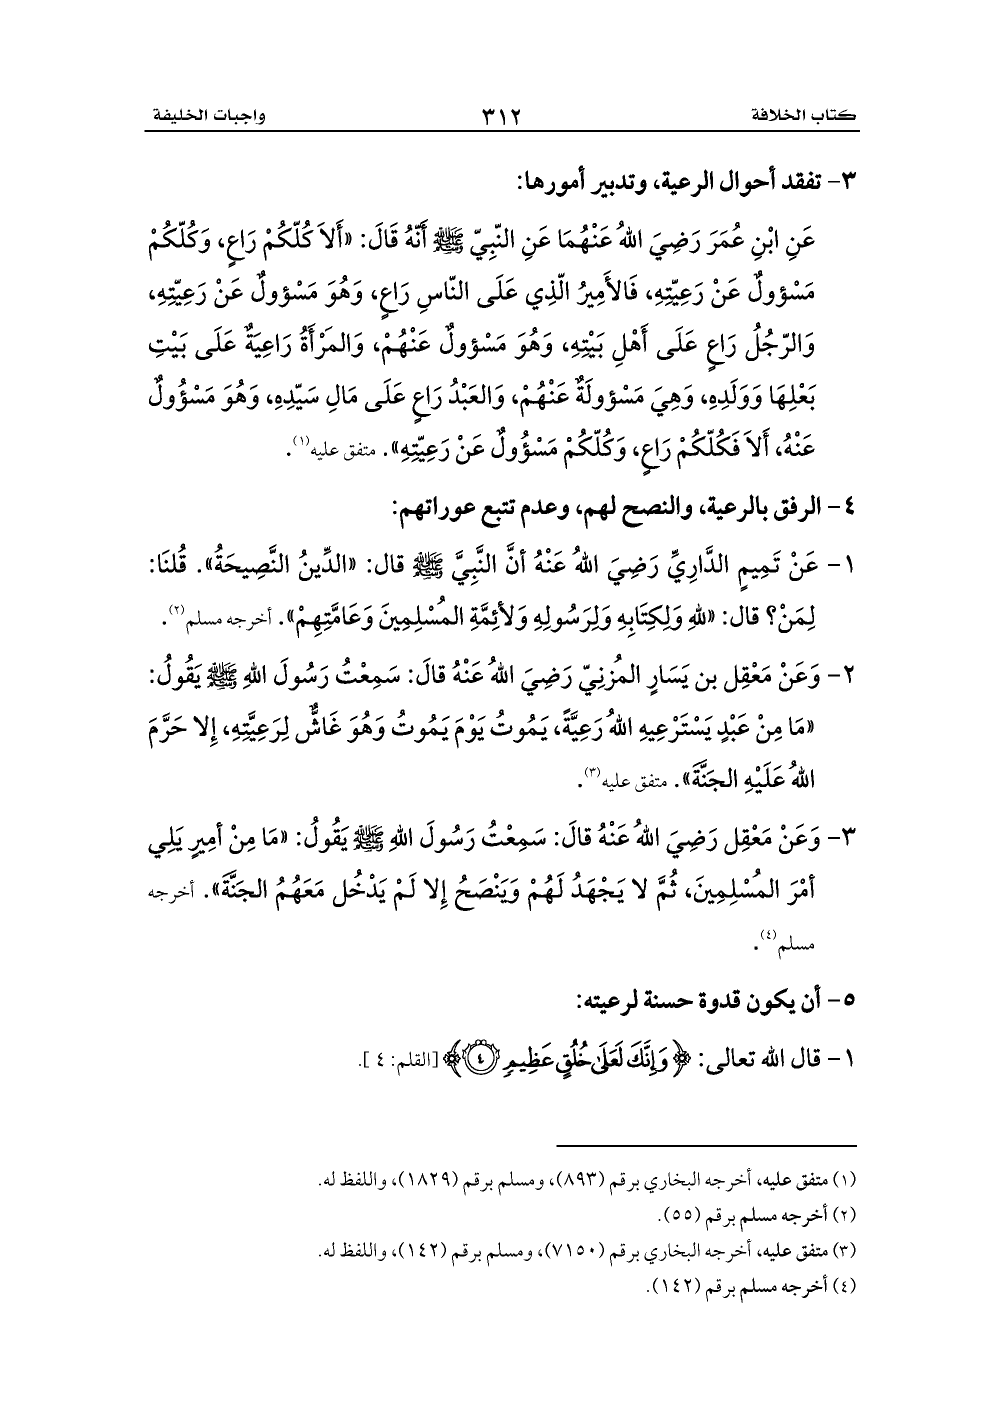 كتاب الخلافة ٣١٢ واجبات الخليفة
٣- تفقد أحوال الرعية، وتدبير أمورها:
عَنِ ابْنِ عُمَرَ رَضِيَ اللهُ عَنْهُمَا عَنِ النّبِيّ ﷺ أَنّهُ قَالَ: «أَلاَ كُلّكُمْ رَاعٍ، وَكُلّكُمْ
مَسْؤولٌ عَنْ رَعِيّتِهِ، فَالأمِيرُ الّذِي عَلَى النّاسِ رَاعٍ، وَهُوَ مَسْؤولٌ عَنْ رَعِيّتِهِ،
وَالرّجُلُ رَاعٍ عَلَى أَهْلِ بَيْتِهِ، وَهُوَ مَسْؤولٌ عَنْهُمْ، وَالمَرْأَةُ رَاعِيَةٌ عَلَى بَيْتِ
بَعْلِهَا وَوَلَدِهِ، وَهِيَ مَسْؤولَةٌ عَنْهُمْ، وَالعَبْدُ رَاعٍ عَلَى مَالِ سَيّدِهِ، وَهُوَ مَسْؤُولٌ
عَنْهُ، أَلاَ فَكُلّكُمْ رَاعٍ، وَكُلّكُمْ مَسْؤُولٌ عَنْ رَعِيّتِهِ». متفق عليه(١).
٤- الرفق بالرعية، والنصح لهم، وعدم تتبع عوراتهم:
١- عَنْ تَمِيمٍ الدَّارِيِّ رَضِيَ اللهُ عَنْهُ أنَّ النَّبِيَّ ﷺ قال: «الدِّينُ النَّصِيحَةُ». قُلنَا:
لِمَنْ؟ قال: «للهِ وَلِكِتَابِهِ وَلِرَسُولِهِ وَلأئِمَّةِ المُسْلِمِينَ وَعَامَّتِهِمْ». أخرجه مسلم(٢).
٢- وَعَنْ مَعْقِل بن يَسَارٍ المُزنِيّ رَضِيَ اللهُ عَنْهُ قالَ: سَمِعْتُ رَسُولَ اللهِ ﷺ يَقُولُ:
«مَا مِنْ عَبْدٍ يَسْتَرْعِيهِ اللهُ رَعِيَّةً، يَمُوتُ يَوْمَ يَمُوتُ وَهُوَ غَاشٌّ لِرَعِيَّتِهِ، إِلا حَرَّمَ
اللهُ عَلَيْهِ الجَنَّةَ». متفق عليه(٣).
٣- وَعَنْ مَعْقِل رَضِيَ اللهُ عَنْهُ قالَ: سَمِعْتُ رَسُولَ اللهِ ﷺ يَقُولُ: «مَا مِنْ أمِيرٍ يَلِي
أمْرَ المُسْلِمِينَ، ثُمَّ لا يَجْهَدُ لَهُمْ وَيَنْصَحُ إِلا لَمْ يَدْخُل مَعَهُمُ الجَنَّةَ». أخرجه
مسلم(٤).
٥- أن يكون قدوة حسنة لرعيته:
١- قال الله تعالى: ﴿وَإِنَّكَ لَعَلَىٰ خُلُقٍ عَظِيمٍ ٤﴾ [القلم: ٤].
(١) متفق عليه، أخرجه البخاري برقم (٨٩٣)، ومسلم برقم (١٨٢٩)، واللفظ له.
(٢) أخرجه مسلم برقم (٥٥).
(٣) متفق عليه، أخرجه البخاري برقم (٧١٥٠)، ومسلم برقم (١٤٢)، واللفظ له.
(٤) أخرجه مسلم برقم (١٤٢).